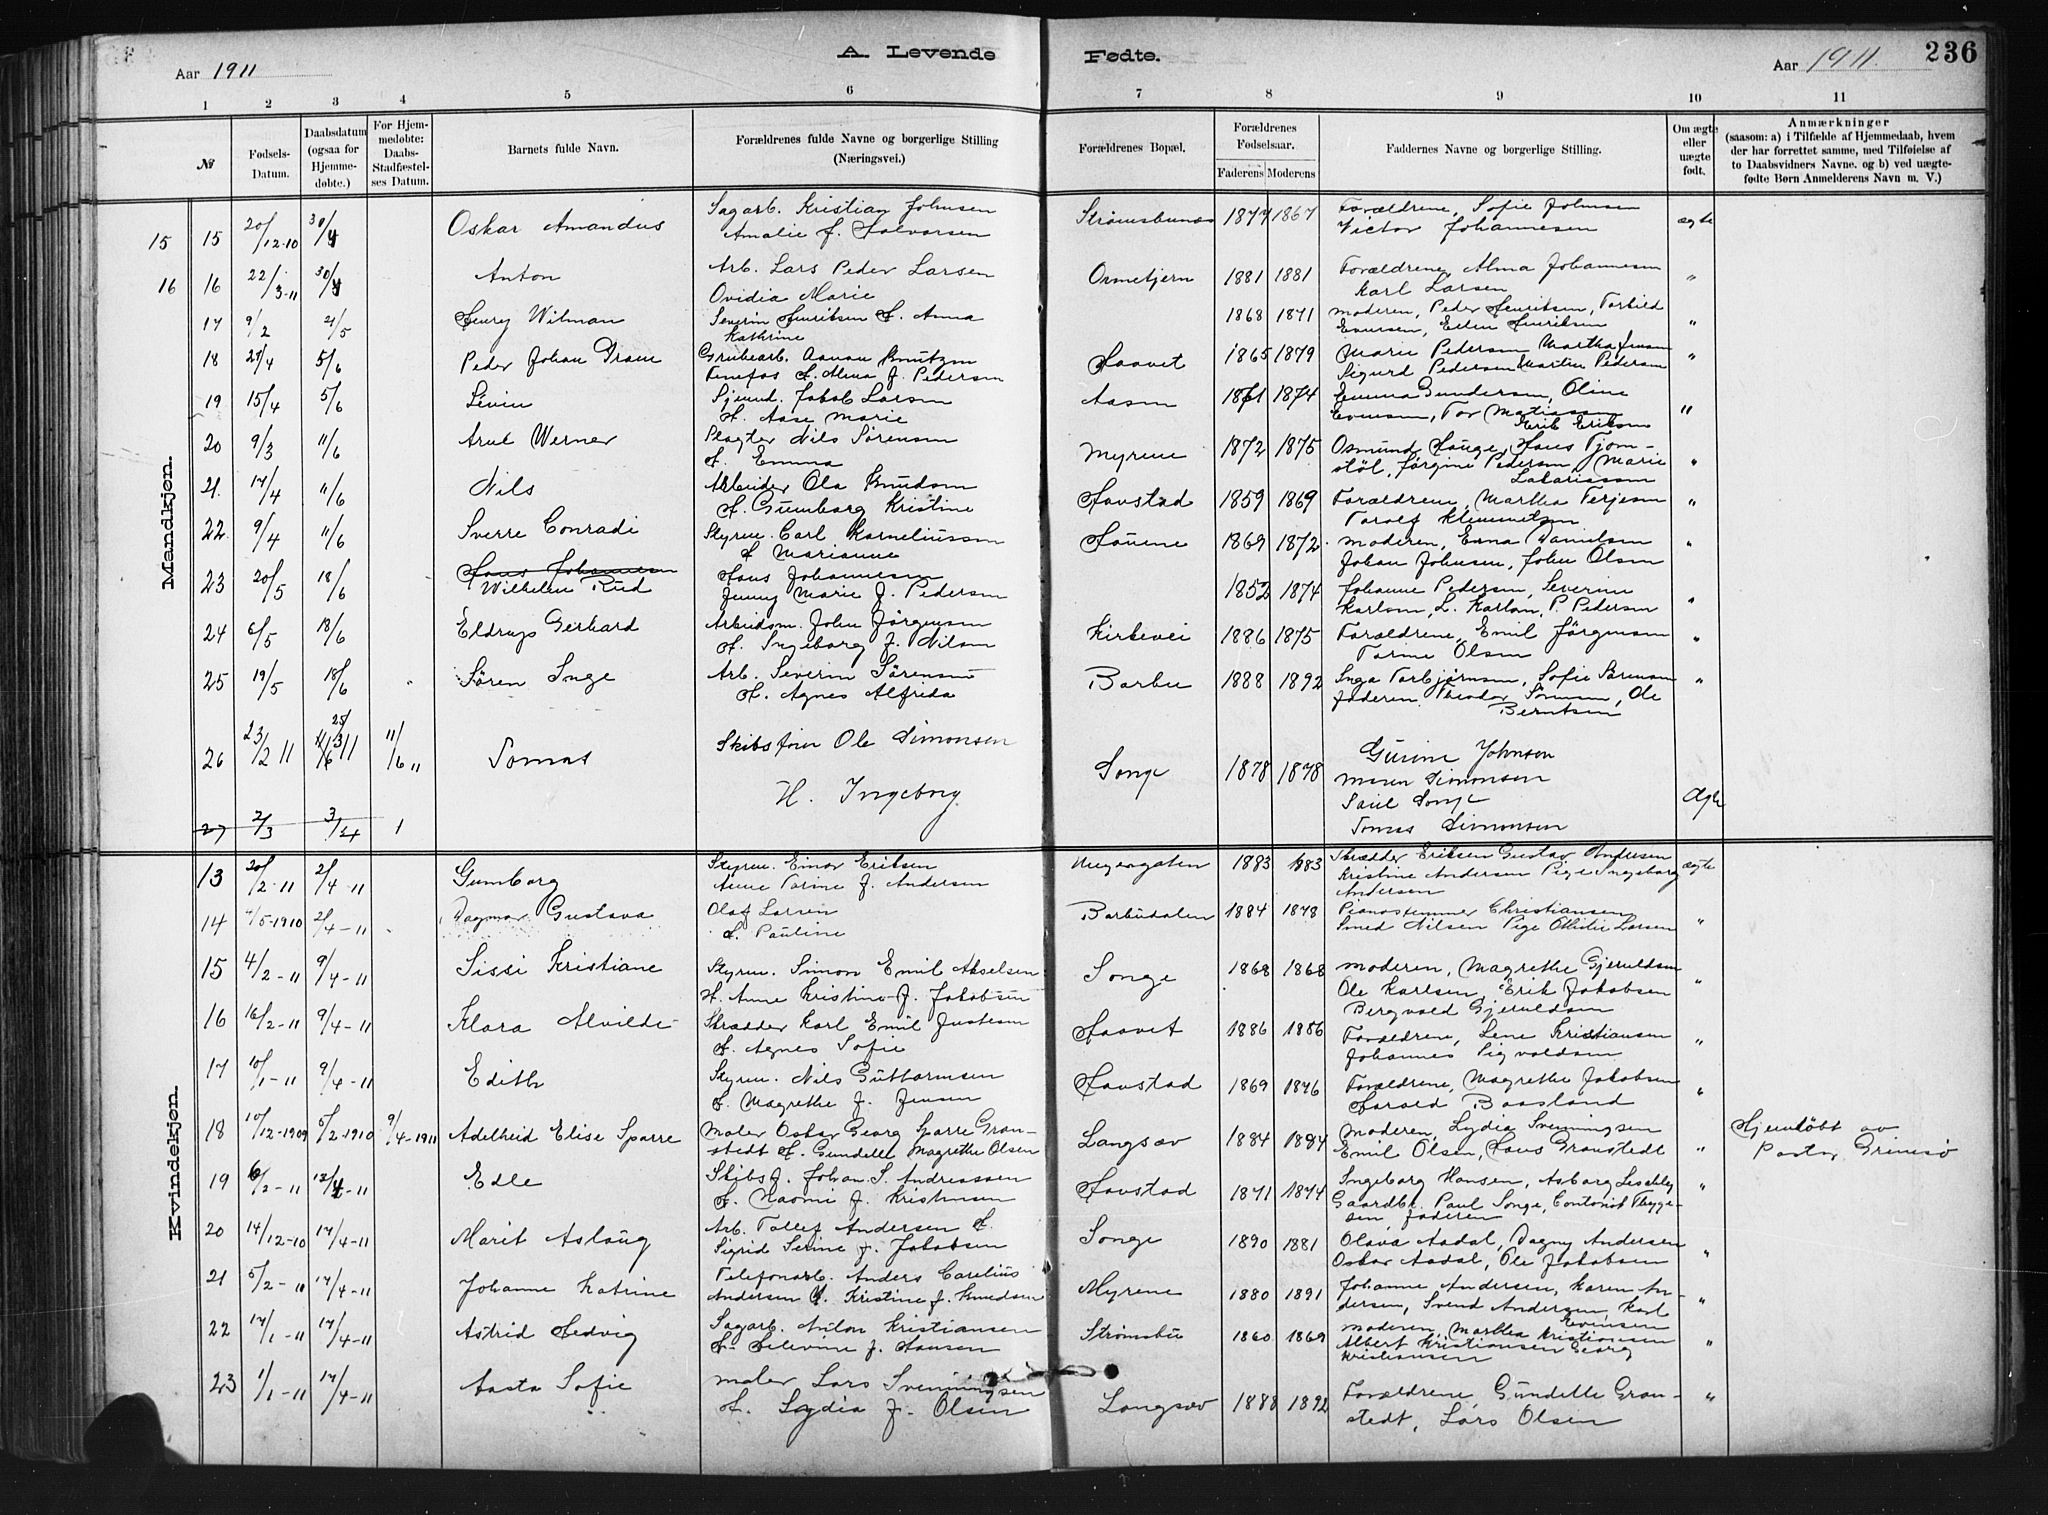 A. Levende Fødte.
236
Aar 1911
Aar 1911.
1 2 3 4 5 6 7 8 9 10 11
№
Fødsels-Datum.
Daabsdatum (ogsaa for Hjemme-døbte.)
For Hjem-medøbte: Daabs-Stadfæstel-ses Datum.
Barnets fulde Navn.
Forældrenes fulde Navne og borgerlige Stilling (Næringsvei.)
Forældrenes Bopæl.
Forældrenes Fødselsaar.
Faderens Moderens
Faddernes Navne og borgerlige Stilling.
Om ægte eller uægte født.
Anmærkninger
(saasom: a) i Tilfælde af Hjemmedaab, hvem der har forrettet samme, med Tilføielse af to Daabsvidners Navne. og b) ved uægte-fødte Børn Anmelderens Navn m. V.)
Mandkjøn.
15 15 20/12-10 30/4 Oskar Amandus Sagarb. Kristian Johnsen Strømsbunes 1877 1867 Forældrene, Sofie Johnsen ægte
Amalie f. Halvorsen Victor Johannesen
16 16 22/3-11 30/4 Anton Arb. Lars Peder Larsen 1881 1881 Forældrene, Alma Johannesen "
Ovidia Marie Karl Larsen
17 9/2 21/5 Henry Wilman Severin Henriksen H. Anna 1868 1871 Moderen, Peder Henriksen, "
Kathrine
18 24/4 5/6 Peder Johan Grubearb. Haavet 1865 1879 Marie Pedersen "
H. Alma f. Pedersen Sigurd Pedersen Martin Pedersen
19 15/4 5/6 Sjømd. Jakob Larsen 1871 1874 Emma Gundersen, Oline "
H. Aase Marie Evensen, Tor
Erik Eriksen
20 9/3 11/6 Arul Werner Nils Sørensen Myrene 1872 1875 Osmund Hauge, Hans "
H. Emma Jørgine Pedersen, Marie
21. 14/4 11/6 Nils Arbeider Ola Knudsen Havstad 1859 1869 Forældrene, Martha Terjesen "
H. Gumborg Kristine
22 9/4 11/6 Sverre Conradi Styrm. Carl Korneliussen 1869 1872. Moderen, Danielsen "
H. Marianne Johan Johnsen, John Olsen
23 20/5 18/6 Hans Johannesen Hans Johannesen 1852 1874 Johanne Pedersen, Severine "
Wilhelm Rud Jenny Marie f. Pedersen Karlsen, L. Karlsen, P. Pedersen
24 6/5 18/6 Gerhard Arbeidsm. John Jørgensen Kirkevei 1886 1875 Forældrene, Emil Jørgensen "
H. Ingeborg f. Nilsen Olsen
25 19/5 18/6 Søren Inge Arb. Severin Sørensen Barbu 1888 1892 Inga Torbjørnsen, Sofie "
H. Agnes Alfrida Faderen, Theodor Sørensen, Ole
Berntsen
26 23/2 11 11/6 Tomas Skibsfører Ole Simonsen Songe 1878 1878 Gurine Johnsen
H. Ingeborg Maren Simonsen
Songe ægte
27 2/3 3/4 1 Tomas Simonsen
Kvindekjøn.
13 20/2-11 2/4-11 Gumborg Styrm. Einar Eriksen 1883 1883 Skrædder Eriksen Gustav Andersen ægte
Anne f. Andersen Kristine Andersen Pige Ingeborg
Andersen
14 4/5-1910 2/4-11 Dagmar Gustava Olaf Larsen Barbudalen 1884 1878 Pianostemmer Christiansen "
H. Pauline Smed Nilsen Pige Larsen
15 4/2-11 9/4-11 Sissi Kristiane Styrm. Simon Emil Akselsen Songe 1868 1868 Moderen, Magrethe Gjeruldsen "
H. Anne Kristine f. Jakobsen Ole Karlsen, Erik Jakobsen
Bergvald Gjeruldsen
16 16/2-11 9/4-11 Klara Alvilde Skrædder Karl Emil Justesen Haavet 1886 1886 Forældrene, Lene Kristiansen "
H. Agnes Sofie Johannes Sigvaldsen
17 10/1-11 9/4-11 Edith Styrm. Nils Guttormsen Havstad 1869 1876 Forældrene, Magrethe Jakobsen "
H. Magrethe f. Jensen Harald Baasland
18 10/12-1909 5/2-1910 9/4-1911 Adelheid Elise Sparre Maler Oskar Georg Sparre Gran- Langsæv 1884 1884 Moderen, Lydia Svenningsen " Hjemdøbt av
stedt H. Gundelle Magrethe Olsen Emil Olsen, Hans Granstedt Pastor Grimsø
19 6/2-11 12/4-11 Edle Skibsf. Johan S. Andreassen Havstad 1871 1874 Ingeborg Hansen, Asborg "
H. Naomi f. Kristensen Gaardbr. Paul Songe, Contorist Thygge-
sen, Faderen
20 14/12-10 17/4-11 Marit Aslaug Arb. Tollef Andersen H. Songe 1890 1881 Olava Aadal, Dagny Andersen "
Sigrid Serine f. Jakobsen Oskar Aadal, Ole Jakobsen
21 5/2-11 17/4-11 Johanne Katrine Telefonarb. Anders Carelius Myrene 1880 1891 Johanne Andersen, Karen An- "
Andersen H. Kristine f. Knudsen dersen, Svend Andersen, Karl
Evensen
22 17/1-11 17/4-11 Astrid Hedvig Sagarb. Anton Kristiansen Strømsbu 1860 1869 Moderen, Martha Kristiansen "
H. Selevine f. Hansen Albert Kristiansen Georg
Kristiansen
23 1/1-11 17/4-11 Aasta Sofie Maler Lars Svenningsen Langsæv 1888 1892 Forældrene, Gundelle Gran- "
H. Lydia f. Olsen stedt, Lars Olsen